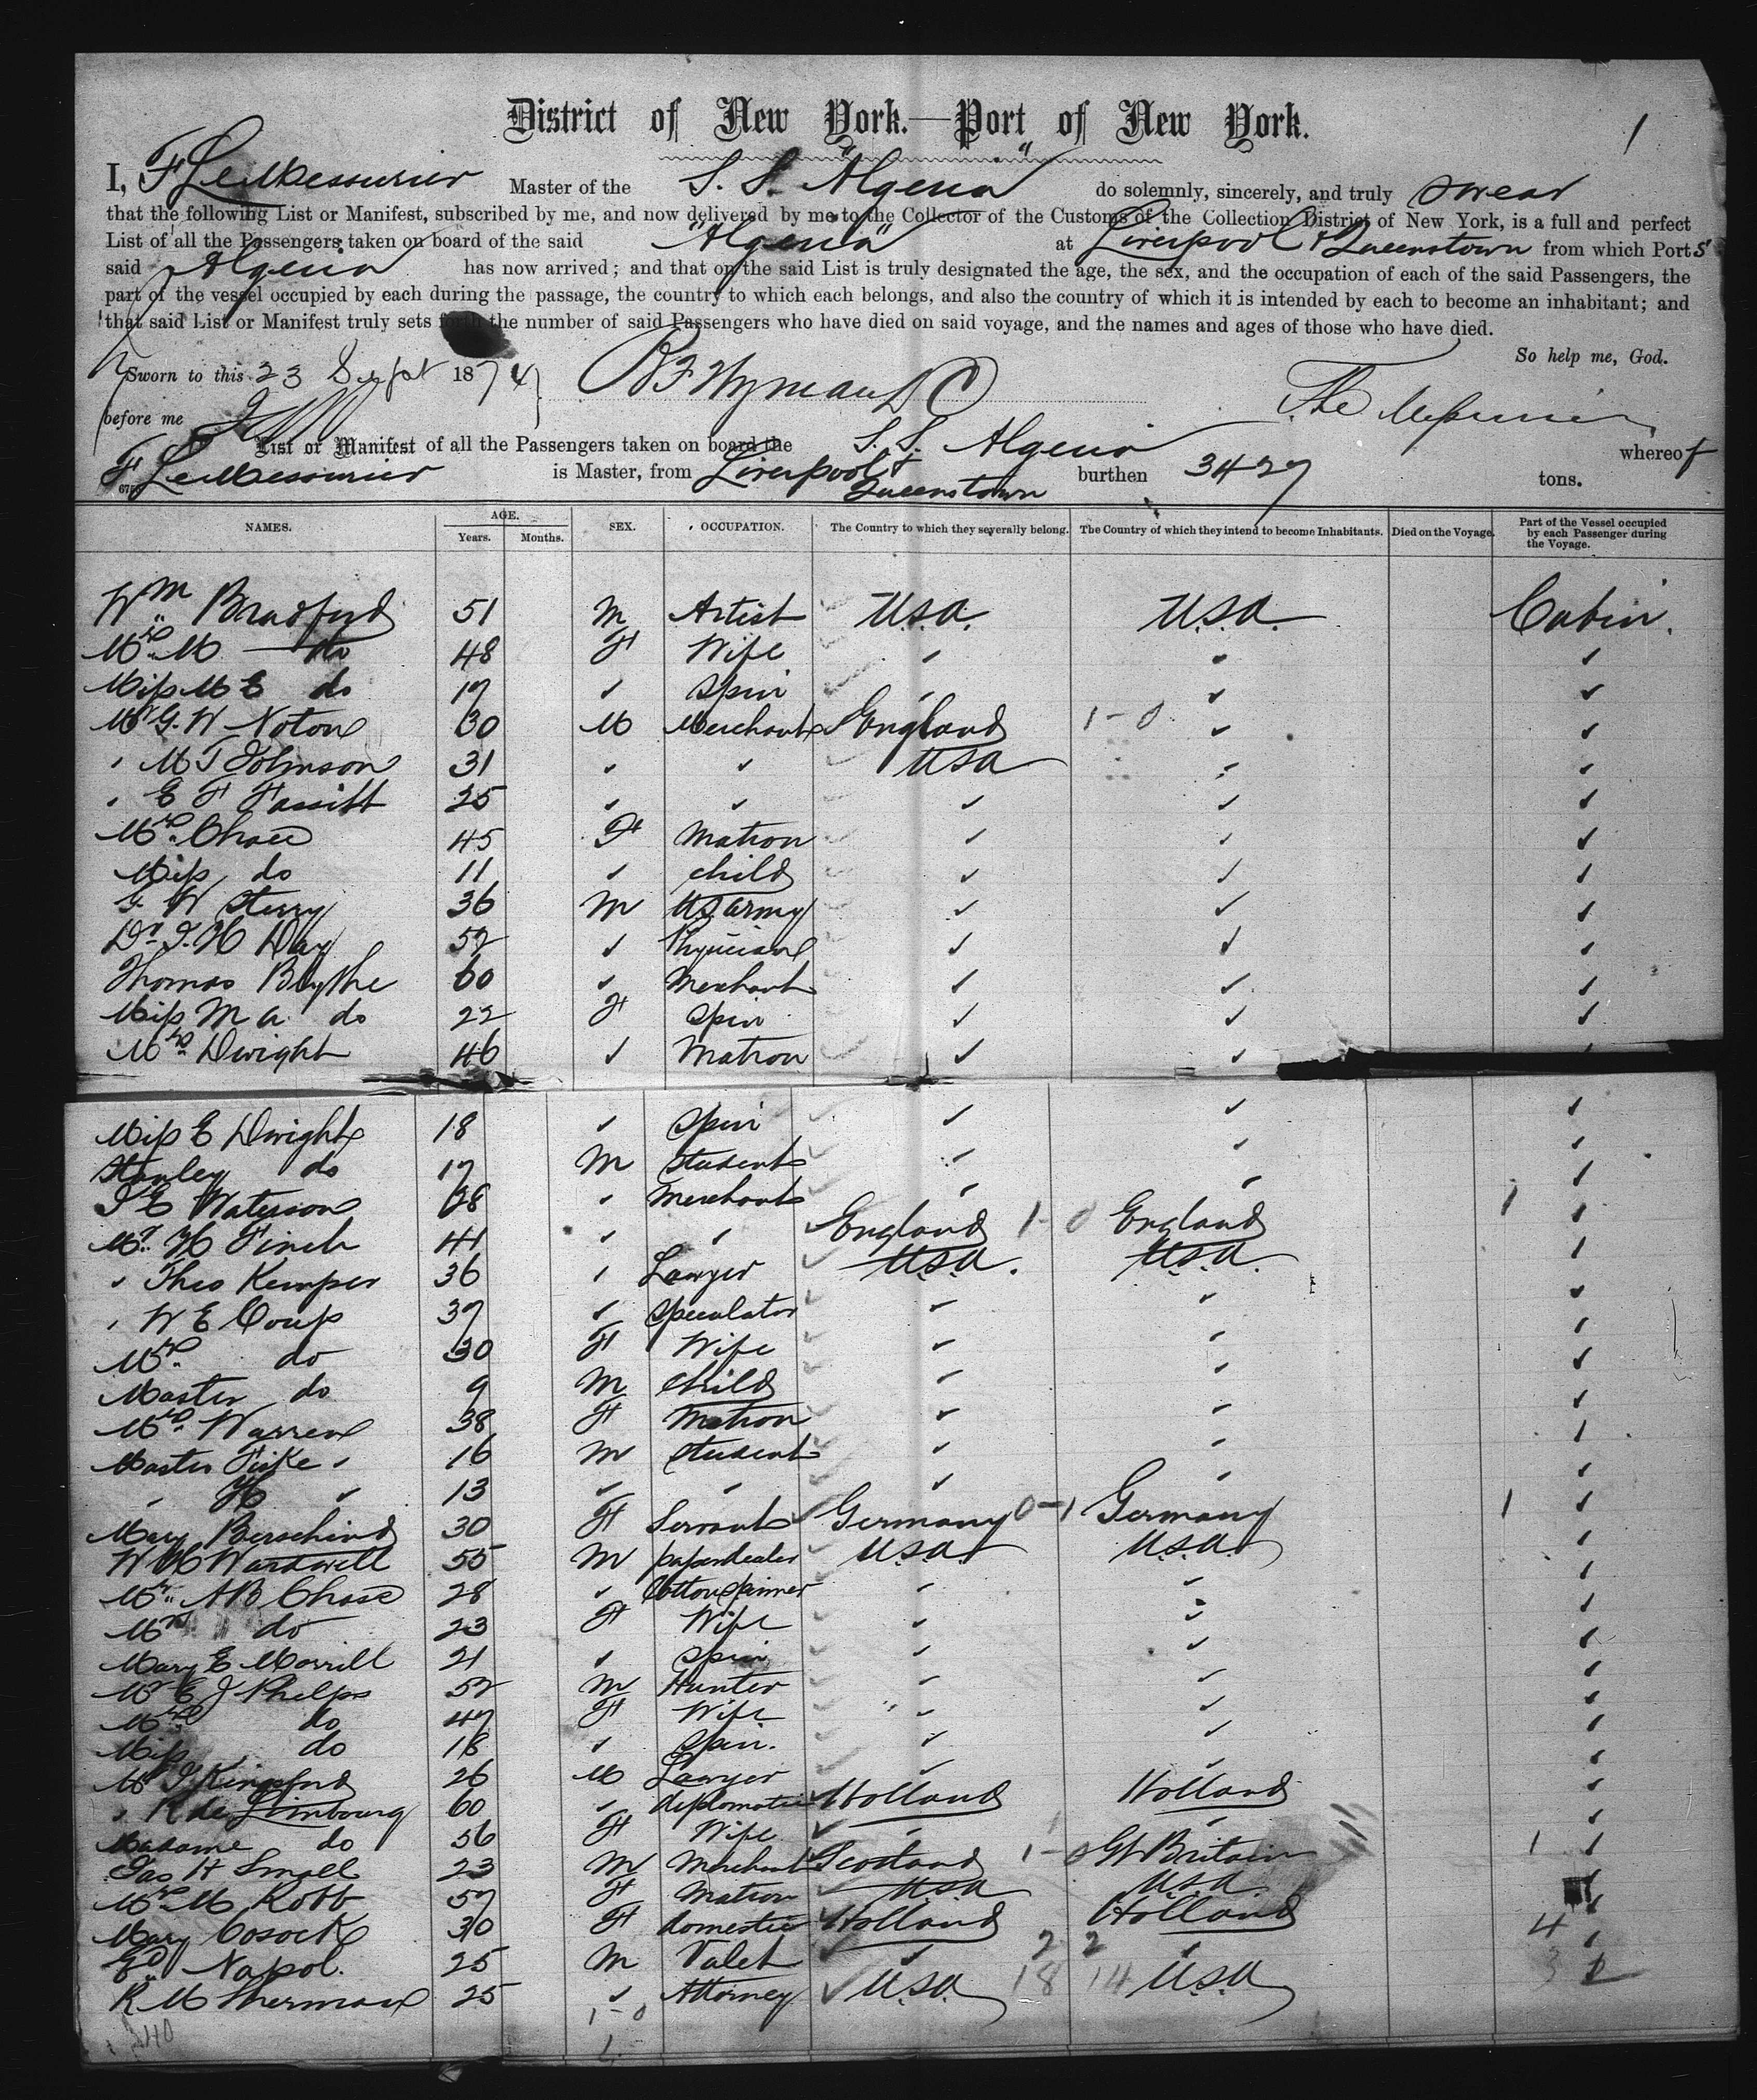 District of New York.—Port of New York.
1
I, F LeMessurier Master of the S. S. "Algeria" do solemnly, sincerely, and truly swear
that the following List or Manifest, subscribed by me, and now delivered by me to the Collector of the Customs of the Collection District of New York, is a full and perfect
List of all the Passengers taken on board of the said "Algeria" at Liverpool & Queenstown from which Ports
said Algeria has now arrived; and that on the said List is truly designated the age, the sex, and the occupation of each of the said Passengers, the
part of the vessel occupied by each during the passage, the country to which each belongs, and also the country of which it is intended by each to become an inhabitant; and
that said List or Manifest truly sets forth the number of said Passengers who have died on said voyage, and the names and ages of those who have died.
So help me, God.
Sworn to this 23 Sept 1874
before me
List or Manifest of all the Passengers taken on board the S. S. Algeria whereof
F LeMessurier is Master, from Liverpool & Queenstown burthen 3427 tons.
NAMES. AGE. Years. Months. SEX. OCCUPATION. The Country to which they severally belong. The Country of which they intend to become Inhabitants. Died on the Voyage. Part of the Vessel occupied by each Passenger during the Voyage.
Wm Bradford 51 M Artist U.S.A. U.S.A. Cabin.
Mrs M do 48 F Wife ✓ ✓ ✓
Miss M E do 17 ✓ Spin ✓ ✓ ✓
Mr G. W Noton 30 M Merchant England 1-0 ✓ ✓
" M T Johnson 31 ✓ ✓ USA ✓ ✓
" E F Fassitt 25 ✓ ✓ ✓ ✓ ✓
Mrs Chase 45 F Matron ✓ ✓ ✓
Miss do 11 ✓ child ✓ ✓ ✓
W Sterry 36 M US Army ✓ ✓ ✓
Dr. H Day 52 ✓ Physician ✓ ✓ ✓
Thomas Blythe 60 ✓ Merchant ✓ ✓ ✓
Miss M A do 22 F Spin ✓ ✓ ✓
Mrs Dwight 46 ✓ Matron ✓ ✓
Miss E Dwight 18 ✓ Spin ✓ ✓ ✓
Stanley do 17 M Student ✓ ✓ ✓
E Waterson 28 ✓ Merchant ✓ ✓ ✓
Mr. H Finch 41 ✓ ✓ England 1-0 England 1 ✓
✓ Theo Kemper 36 ✓ Lawyer U.S.A. U.S.A. ✓
" W E Coup 37 ✓ Speculator ✓ ✓ ✓
Mrs. do 30 F Wife ✓ ✓ ✓
Master do 9 M Child ✓ ✓ ✓
Mrs Warren 38 F Matron ✓ ✓ ✓
Master Fiske ✓ 16 M Student ✓ ✓ ✓
✓ H ✓ 13 ✓ ✓ ✓ ✓ ✓
Mary Berschind 30 F Servant Germany 0-1 Germany 1 ✓
W H Wardwell 55 M paperdealer U.S.A U.S.A ✓
Mr. A B Chase 28 ✓ Cotton Spinner ✓ ✓ ✓
Mrs do 23 F Wife ✓ ✓ ✓
Mary E Morrill 21 ✓ Spin ✓ ✓ ✓
Mr E J Phelps 52 M Hunter ✓ ✓ ✓
Mrs do 47 F Wife ✓ ✓ ✓
Miss do 18 ✓ Spin. ✓ ✓ ✓
Mr Kingsford 26 M Lawyer ✓ ✓ ✓
✓ R de Limbourg 60 ✓ diplomatic Holland Holland ✓
Madame do 56 F Wife ✓ ✓ ✓
Jas H Small 23 M Merchant Scotland 1-0 Gt Britain 1 ✓
Mrs M Robb 57 F Matron USA U.S.A ✓
Mary Cosock 30 F domestic Holland Holland ✓
Ed Napol. 25 M Valet ✓ 2 2 ✓ 4 ✓
R M Sherman 25 ✓ Attorney U.S.A. 18 14 U.S.A 3
1-0
40